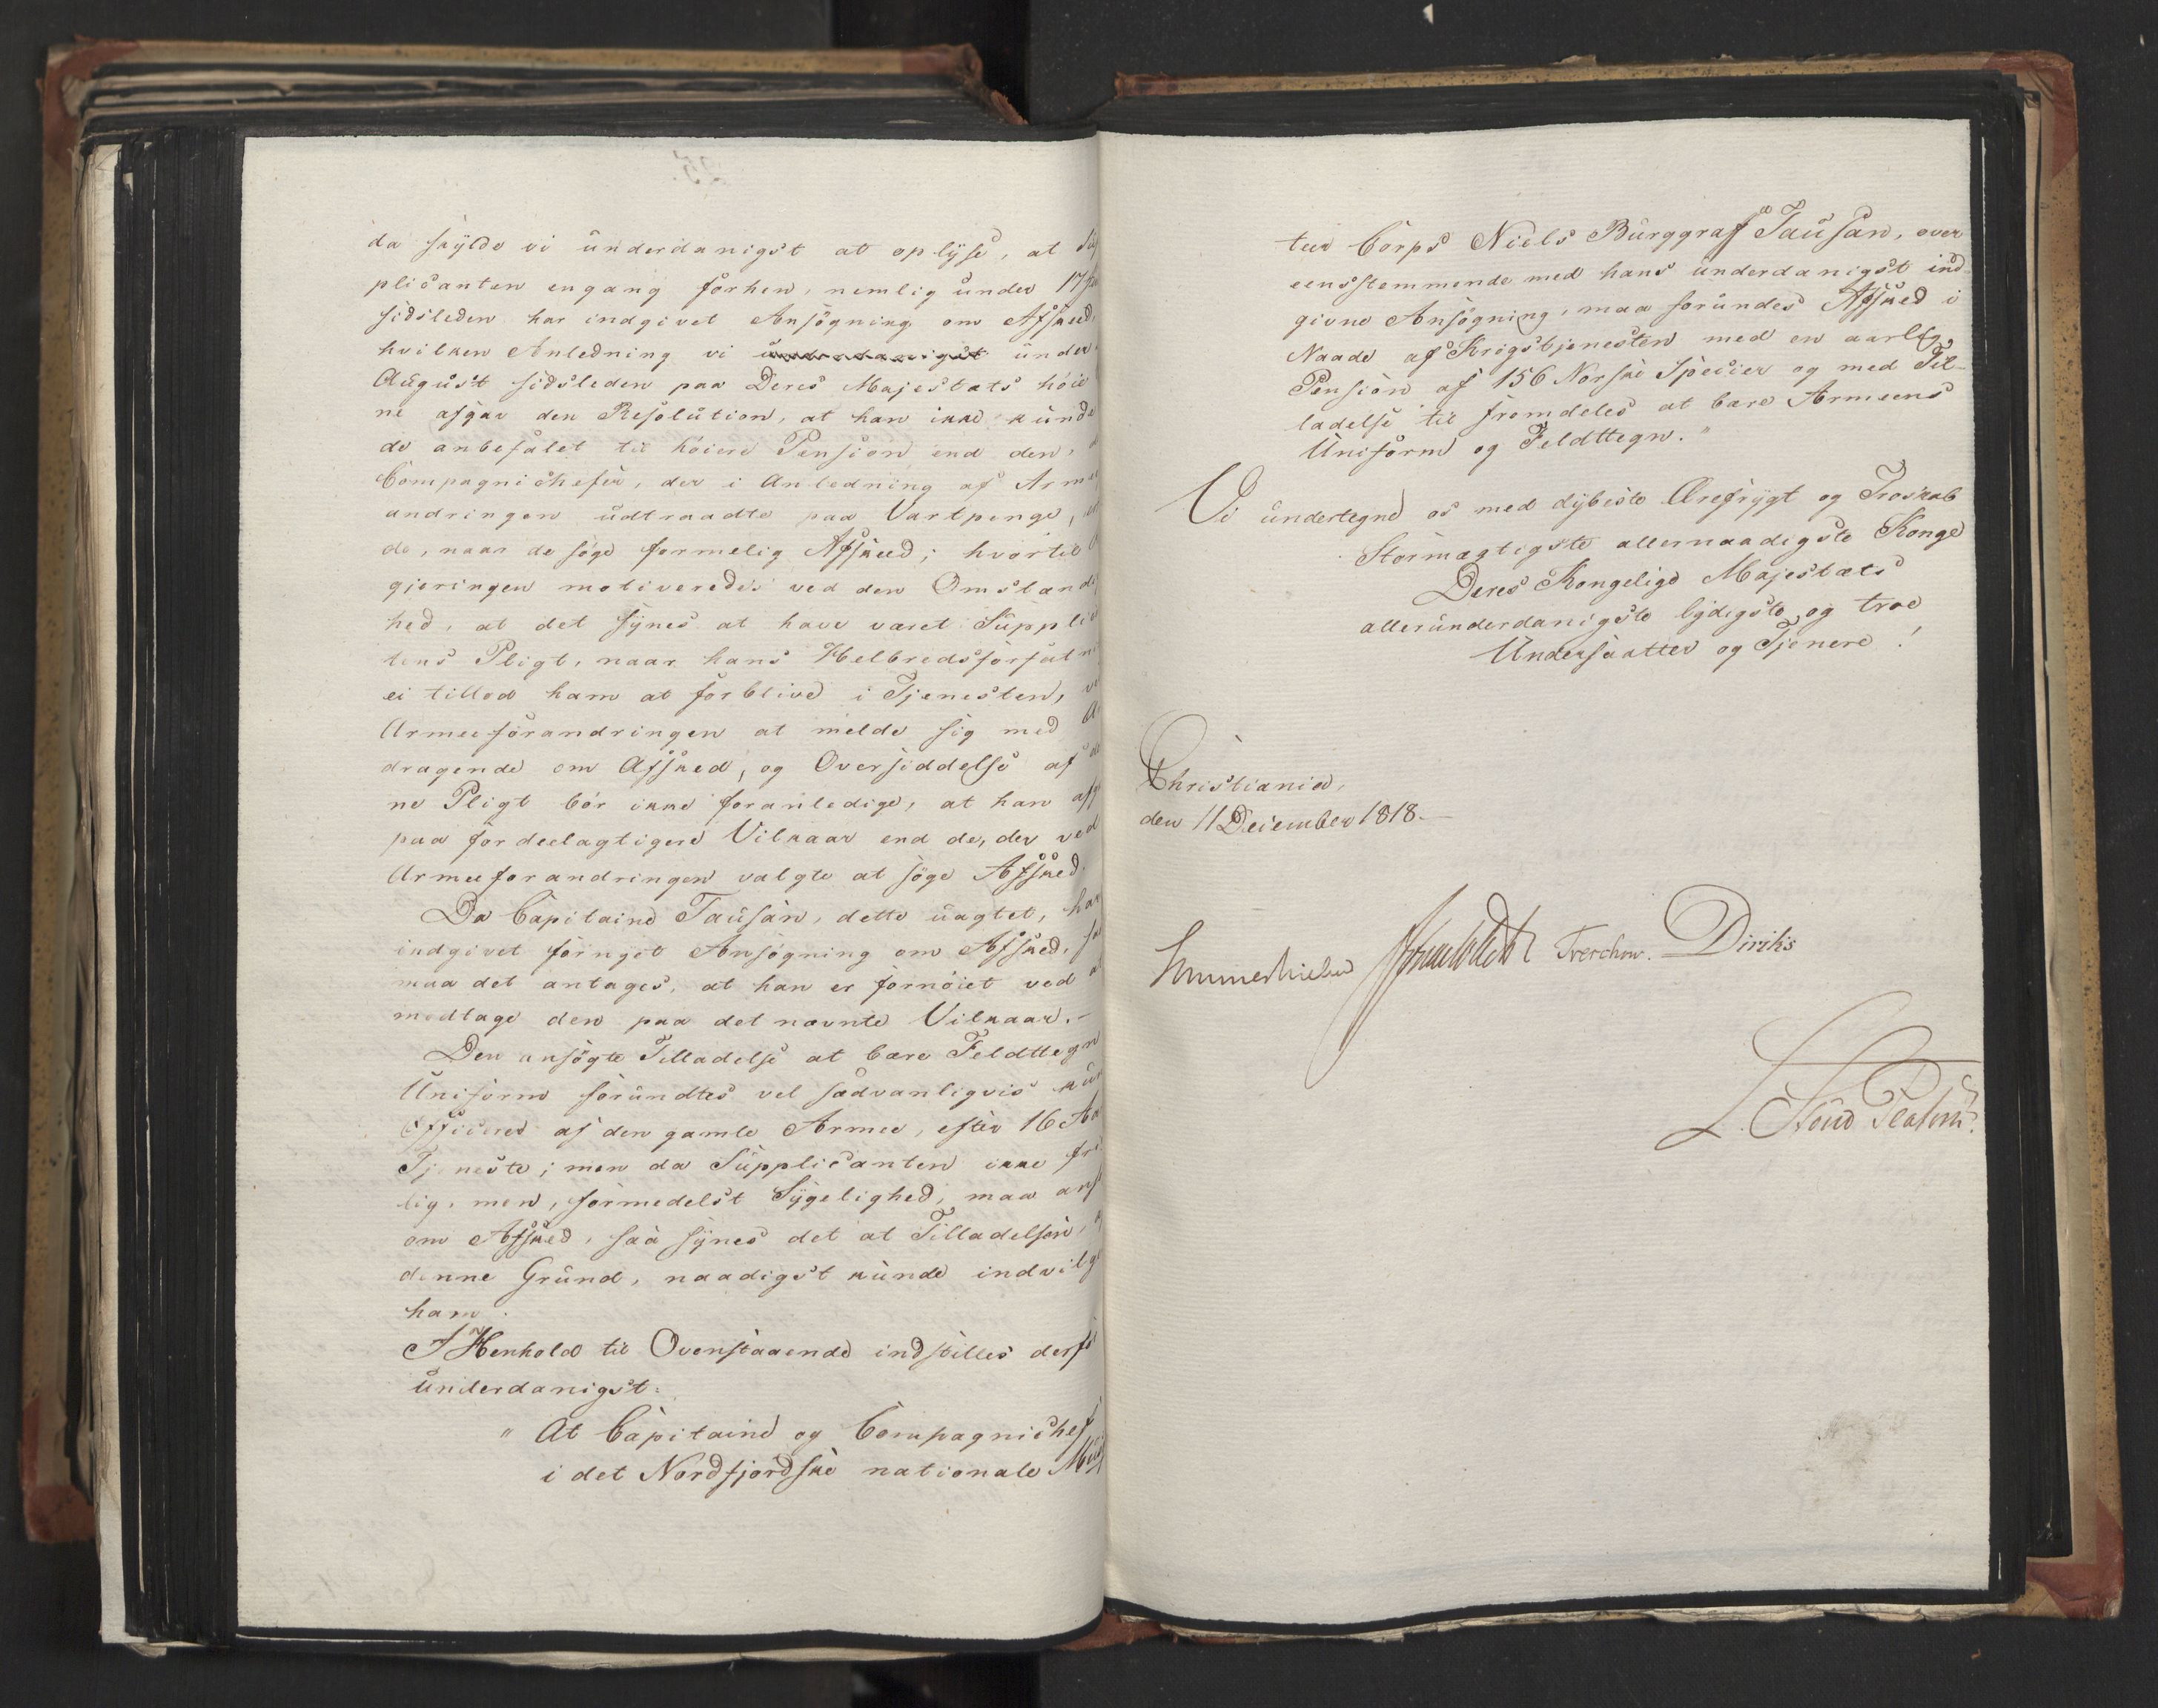 da skylde vi underdanigst at oplyse, at Sup
plicanten engang forhen, nemlig under 17
sidsleden har indgivet Ansögning om Afskeed,
hvilken Anledning vi underdanigst under
August sidsleden paa Deres Majestæts höie
ne afgav den Resolution, at han ikke kunde
de anbefalet til höiere Pension end den,
Compagnichefer, der i Anledning af Arme
andringen udtraadte paa Vartpenge,
de, naar de söge formelig Afskeed; hvortil
gjeringen motiveredes ved den Omstændig
hed, at det synes at have været Supplic
tens Pligt, naar hans Helbredsforfatn
ei tillod ham at forblive i Tjenesten, ve
Armeeforandringen at melde sig med A
dragende om Afskeed, og Oversiddelse af de
ne Pligt bör ikke foranledige, at han afg
paa fordeelagtigere Vilkaar end de, der ved
Armeeforandringen valgte at söge Afskeed.
Da Capitaine Tausan, dette uagtet, har
indgivet fornyet Ansögning om Afskeed, saa
maa det antages, at han er fornöiet ved at
modtage den paa det nævnte Vilkaar.-
Den ansögte Tilladelse at bære Feldttegn
Uniform forundtes vel sædvanligvis kun
Officerer af den gamle Armee, efter 16 Aa
Tjeneste; men da Supplicanten ikke fri
lig, men, formedelst Sygelighed, maa ansö
om Afskeed, saa synes det at Tilladelsen,
denne Grund, naadigst kunde indvilge
ham.
I Henhold til Ovenstaaende indstilles derfo
underdanigst:
" At Capitaine og Compagnichef
i det Nordfjordske nationale Mus
teer Corps Niels Burggraf Tausan, over
eensstemmende med hans underdanigst ind-
givne Ansögning, maa forundes Afskeed i
Naade af Krigstjenesten med en aarlig
Pension af 156 Norske Specier og med Til-
ladelse til fremdeles at bære Armeens
Uniform og Feldttegn."
Vi undertegne os med dybeste Ærefrygt og Troskab
Stormægtigste allernaadigste Konge
Deres Kongelige Majestæts
allerunderdanigste lydigste og troe
Undersaatter og Tjenere!
Christiania,
den 11 December 1818.-
Sommerhielm Treschow. Diriks
L. Stoud Platou